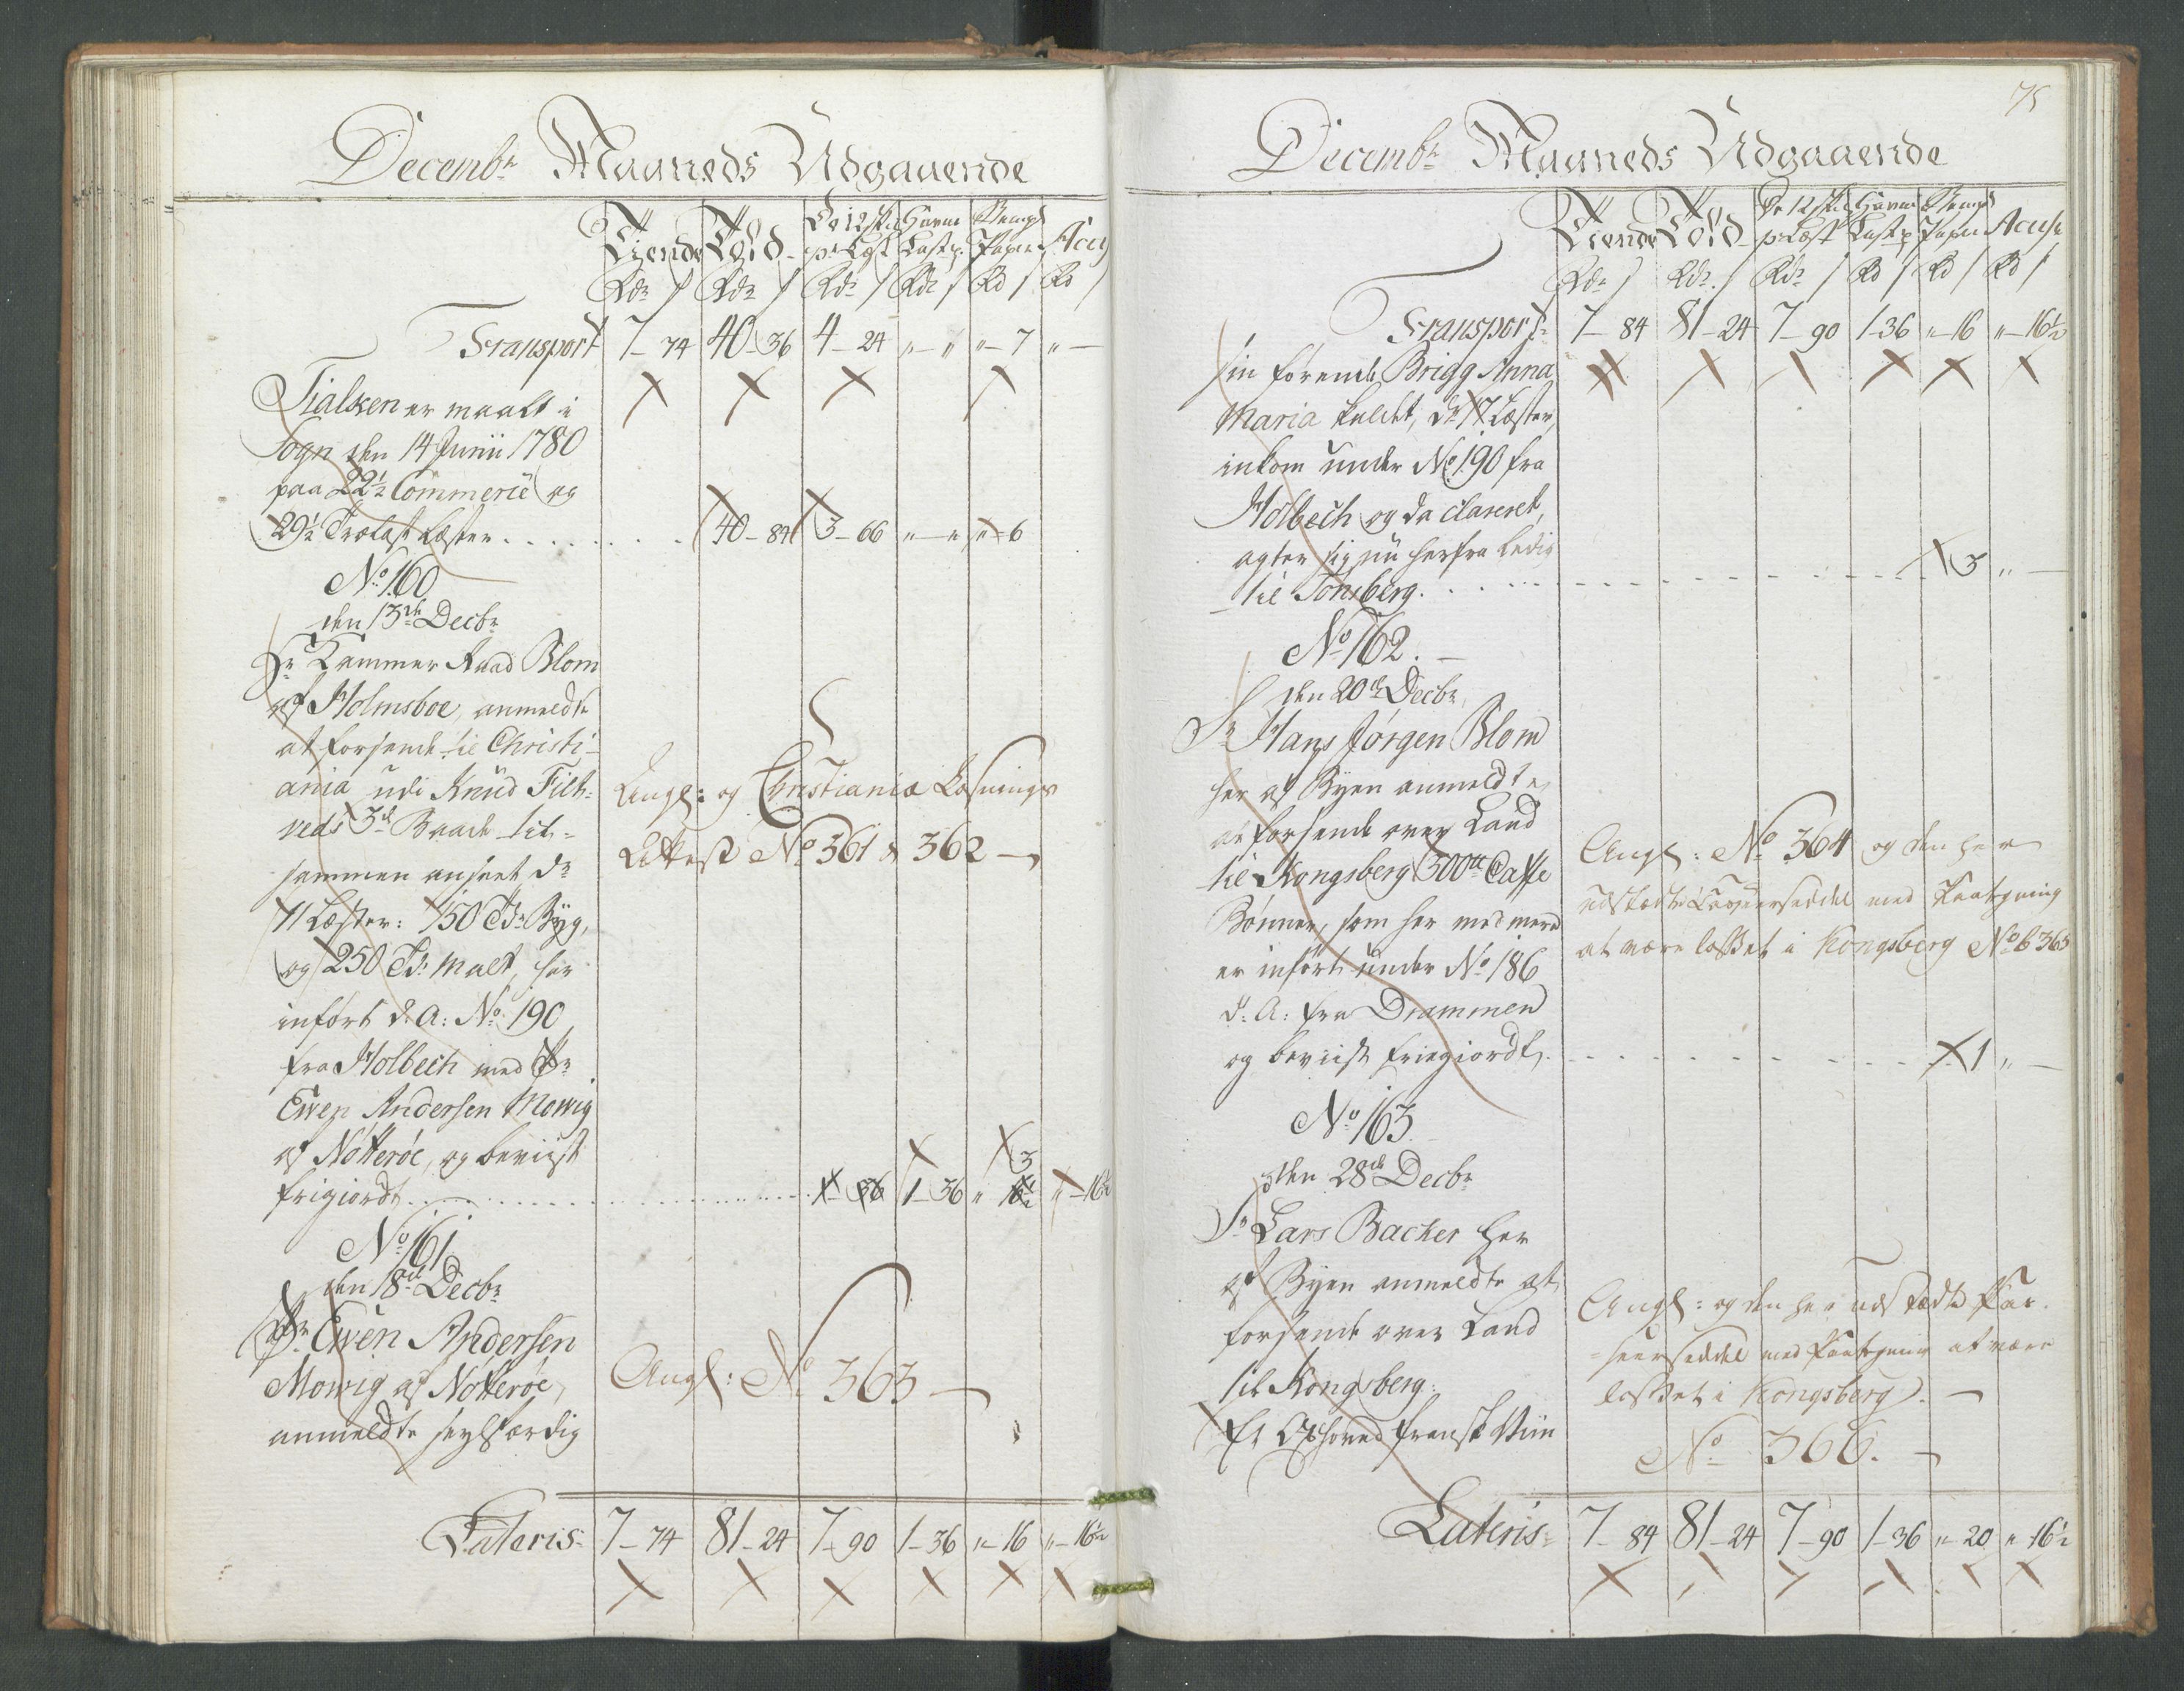 Decembr Maaneds Udgaaende
Tiende Told De 12 skl. pr Læst Havne Lastp. Stempl Papir Acus
Rdr s Rdr s Rdr s Rdr s Rd s Rd s
Transport 7-74 40-36 4-24 "-" "-7 "-
Tialken er maalt i
Sogn den 14 Junii 1780
paa 22½ Commerce og
29½ Trælast Læster . . . . . . . . 40-84 3-66 "-" "-6
No 160
den 13de Decbr
Hr Kammer Raad Blom
af Holmsboe, anmeldte
at forsende til Christi-
ania udi Knud Filt-
veds 3de Baade til-
sammen anseet dr
11 Læster: 150 Tdr Byg,
og 250 Tdr Malt, her
indført d: A: No 190
fra Holbech med Sr
Ewen Andersen Mowig
af Nøtterøe, og beviist
frigiordt
Angl: og Christiania Losnings
Attest No 361 & 362
3
1-36 1-36 " "-16½
No 161
den 18de Decbr
Sr Ewen Andersen
Mowig af Nøtterøe,
anmeldte seylfærdig
Angl: No 363
Lateris: 7-74 81-24 7-90 1-36 "-16 "-16½
75
Decembr Maaneds Udgaaende
Tiende Told De 12 skl. pr Læst Havne Lastp. Stempl Papir Acuse
Rdr s Rdr. s Rdr s Rd s Rd s Rd s
Transport: 7-84 81-24 7-90 1-36 "-16 "-16½
sin førende Brigg Anna
Maria kaldet, dr 17 Læster,
inkom under No 190 fra
Holbech og da clareret,
agter sig nu herfra ledig
til Tønsberg. . . . 3 "-
No 162.
den 20de Decbr
Sr Hans Jørgen Blom
her af Byen anmeldte,
at forsende over Land
til Kongsberg 300 tt Caffe
Bønner, som her med mere
er indført under No 186
d: A: fra Drammen
og beviist friegiordt. . . . 1 "-
Angl: No 364 og den her
udstædte med Paategning
at være losset i Kongsberg No 365
No 163.
den 28de Decbr
Sr Lars Backer her
af Byen anmeldte at
forsende over Land
til Kongsberg:
Et Oxhoved fransk Viin
Angl: og den her udstædte Pas-
seerseddel med Paategning at være
losset i Kongsberg.
No 366.
Lateris: 7-84 81-24 7-90 1-36 "-20 "-16½